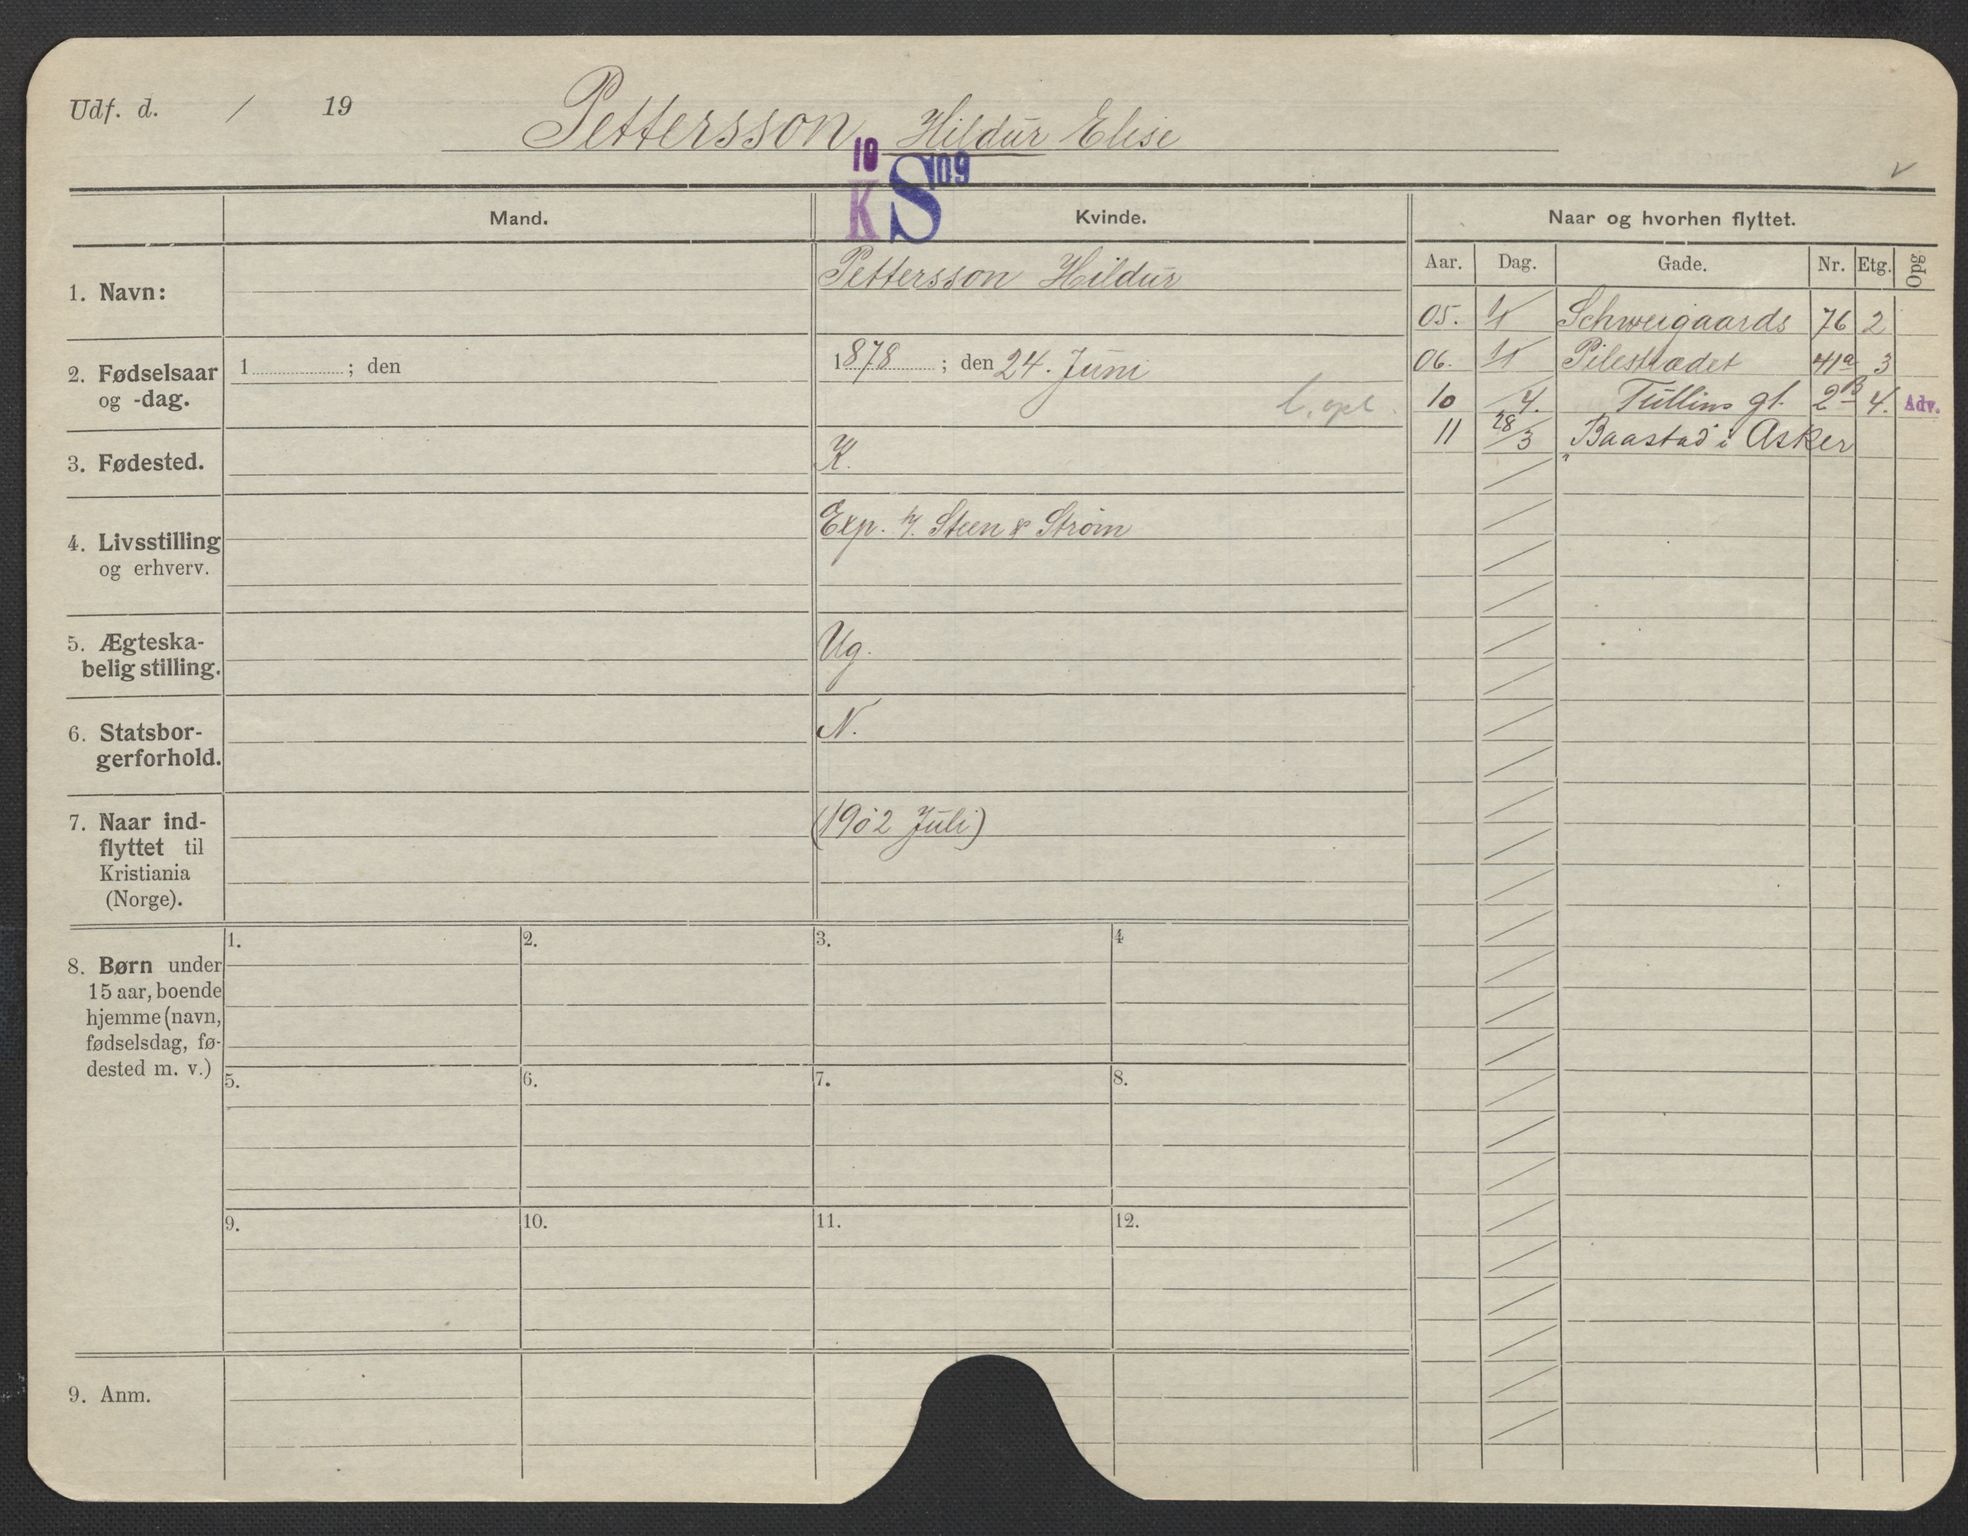 Udf. d. / 19
Pettersson Hildur Elise
10 K S 109
Mand.
Kvinde.
Naar og hvorhen flyttet.
Aar. Dag. Gade. Nr. Etg. Opg
1. Navn:
Pettersson Hildur
2. Fødselsaar
og -dag.
1 ; den
1878 ; den 24. Juni
3. Fødested.
K.
4. Livsstilling
og erhverv.
Exp. Steen & Strøm
5. Ægteska-
belig stilling.
Ug.
6. Statsbor-
gerforhold.
N.
7. Naar ind-
flyttet til
Kristiania
(Norge).
(1902 Juli)
05. Schweigaards 76 2
06. Pilestrædet 41a 3
10 /4. Tullins gt. 2B 4. Adv.
11 28/3 Baastad i Asker
8. Børn under
15 aar, boende
hjemme (navn,
fødselsdag, fø-
dested m. v.)
1. 2. 3. 4
5. 6. 7. 8.
9. 10. 11. 12.
9. Anm.